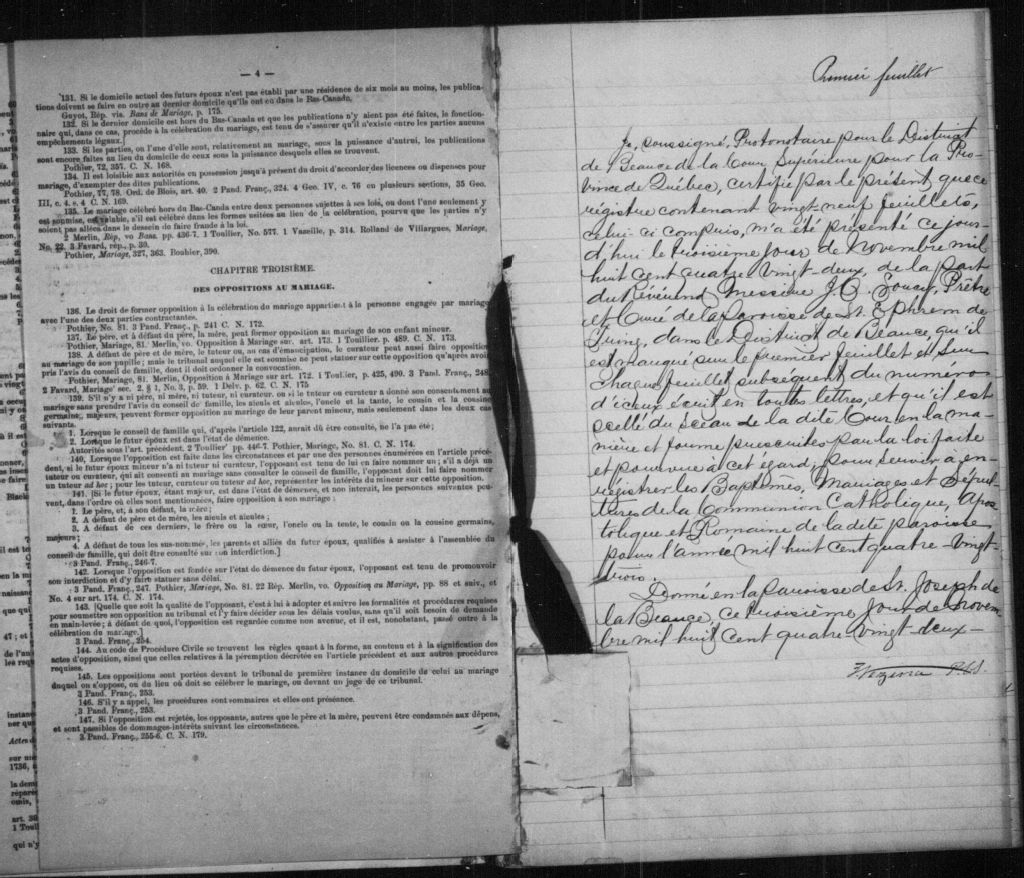 — 4 —
131. Si le domicile actuel des futurs époux n'est pas établi par une résidence de six mois au moins, les publica-
tions doivent se faire en outre au dernier domicile qu'ils ont eu dans le Bas-Canada.
Guyot, Rép. vis. Bans de Mariage, p. 175.
132. Si le dernier domicile est hors du Bas-Canada et que les publications n'y aient pas été faites, le fonction-
naire qui, dans ce cas, procède à la célébration du mariage, est tenu de s'assurer qu'il n'existe entre les parties aucuns
empêchements légaux.]
133. Si les parties, ou l'une d'elle sont, relativement au mariage, sous la puissance d'autrui, les publications
sont encore faites au lieu du domicile de ceux sous la puissance desquels elles se trouvent.
Pothier, 72, 357. C. N. 168.
134. Il est loisible aux autorités en possession jusqu'à présent du droit d'accorder des licences ou dispenses pour
mariage, d'exempter des dites publications.
Pothier, 77, 78. Ord. de Blois, art. 40. 2 Pand. Franç., 324. 4 Geo. IV, c. 76 en plusieurs sections, 35 Geo.
III, c. 4. s. 4 C. N. 169.
135. Le mariage célébré hors du Bas-Canda entre deux personnes sujettes à ses lois, ou dont l'une seulement y
est soumise, est valable, s'il est célébré dans les formes usitées au lieu de la célébration, pourvu que les parties n'y
soient pas allées dans le dessein de faire fraude à la loi.
2 Merlin, Rép, vo Bans. pp. 436-7. 1 Toullier, No. 577. 1 Vazeille, p. 314. Rolland de Villargues, Mariage,
No. 22. 3 Favard, rép., p. 39.
Pothier, Mariage, 327, 363. Bouhier, 390.
CHAPITRE TROISIÈME.
DES OPPOSITIONS AU MARIAGE.
136. Le droit de former opposition à la célébration du mariage appartient à la personne engagée par mariage
avec l'une des deux parties contractantes.
Pothier, No. 81. 3 Pand. Franç., p. 241 C. N. 172.
137. Le père, et à défaut du père, la mère, peut former opposition au mariage de son enfant mineur.
Pothier, Mariage, 81. Merlin, vo. Opposition à Mariage sur art. 173. 1 Touillier. p. 489. C. N. 173.
138. A défaut de père et de mère, le tuteur ou, au cas d'émancipation, le curateur peut aussi faire opposition
au mariage de son pupille ; mais le tribunal auquel elle est soumise ne peut statuer sur cette opposition qu'après avoir
pris l'avis du conseil de famille, dont il doit ordonner la convocation.
Pothier, Mariage, 81. Merlin, Opposition à Mariage sur art. 172. 1 Toullier, p. 425, 490. 3 Pand. Franç., 248.
2 Favard, Mariage' sec. 2. § 1, No. 3, p. 59. 1 Delv. p. 62. C. N. 175
139. S'il n'y a ni père, ni mère, ni tuteur, ni curateur. ou si le tuteur ou curateur a donné son consentement au
mariage sans prendre l'avis du conseil de famille, les aïeuls et aïeules, l'oncle et la tante, le cousin et la cousine
germains, majeurs, peuvent former opposition au mariage de leur parent mineur, mais seulement dans les deux cas
suivants.
1. Lorsque le conseil de famille qui, d'après l'article 122, aurait dû être consulté, ne l'a pas été ;
2. Lorsque le futur époux est dans l'état de démence.
Autorités sous l'art. précédent. 2 Toullier' pp. 446-7. Pothier, Mariage, No. 81. C. N. 174.
140. Lorsque l'opposition est faite dans les circonstances et par une des personnes énumérées en l'article précé-
dent, si le futur époux mineur n'a ni tuteur ni curateur, l'opposant est tenu de lui en faire nommer un ; s'il a déjà un
tuteur ou curateur, qui ait consenti au mariage sans consulter le conseil de famille, l'opposant doit lui faire nommer
un tuteur ad hoc ; pour les tuteur, curateur ou tuteur ad hoc, représenter les intérêts du mineur sur cette opposition.
141. [Si le futur époux, étant majeur, est dans l'état de démence, et non interdit, les personnes suivantes peu-
vent, dans l'ordre où elles sont mentionnées, faire opposition à son mariage :
1. Le père, et, à son défaut, la mère ;
2. A défaut de père et de mère, les aïeuls et aïeules ;
3. A défaut de ces derniers, le frère ou la sœur, l'oncle ou la tente, le cousin ou la cousine germains,
majeurs ;
4. A défaut de tous les sus-nommés, les parents et alliés du futur époux, qualifiés à assister à l'assemblée du
conseil de famille, qui doit être consulté sur son interdiction.]
3 Pand. Franç., 246-7.
142. Lorsque l'opposition est fondée sur l'état de démence du futur époux, l'opposant est tenu de promouvoir
son interdiction et d'y faire statuer sans délai.
3 Pand. Franç., 247. Pothier, Mariage, No. 81. 22 Rép. Merlin, vo. Opposition au Mariage, pp. 88 et suiv., et
No. 4 sur art. 174. C. N. 174.
143. [Quelle que soit la qualité de l'opposant, c'est à lui à adopter et suivre les formalités et procédures requises
pour soumettre son opposition au tribunal et l'y faire décider sous les délais voulus, sans qu'il soit besoin de demande
en main-levée ; à défaut de quoi, l'opposition est regardée comme non avenue, et il est, nonobstant, passé outre à la
célébration du mariage.
3 Pand. Franç., 254.
144. Au code de Procédure Civile se trouvent les règles quant à la forme, au contenu et à la signification des
actes d'opposition, ainsi que celles relatives à la péremption décrétée en l'article précédent et aux autres procédures
requises.
145. Les oppositions sont portées devant le tribunal de première instance du domicile de celui au mariage
duquel on s'oppose, ou du lieu où doit se célébrer le mariage, ou devant un juge de ce tribunal.
3 Pand. Franç., 253.
146. S'il y a appel, les procédures sont sommaires et elles ont préséance.
3 Pand. Franç., 253.
147. Si l'opposition est rejetée, les opposants, autres que le père et la mère, peuvent être condamnés aux dépens,
et sont passibles de dommages-intérêts suivant les circonstances.
3 Pand. Franç., 255-6. C. N. 179.
Premier feuillet
Je, soussigné, Protonotaire pour le District
de Beauce de la Cour Supérieure pour la Pro-
vince de Québec, certifie par le présent que ce
régistre contenant vingt-neuf feuillets,
celui-ci compris, m'a été présenté ce jour-
d'hui le troisième jour de Novembre mil
huit cent quatre vingt-deux, de la part
du Révérend Messire J. B. Soucy, Prêtre
et Curé de la Paroisse de St. Ephrem de
Tring, dans le District de Beauce, qu'il
est marqué sur le premier feuillet et sur
chaque feuillet subséquent du numéro
d'iceux écrit en toutes lettres, et qu'il est
scellé du sceau de la dite Cour en la ma-
nière et forme prescrites par la loi faite
et pourvue à cet égard, pour servir à en-
régistrer les Baptêmes, Mariages et Sépul-
tures de la Communion Catholique, Apos-
tolique et Romaine de la dite paroisse
pour l'année mil huit cent quatre-vingt-
trois.
Donné en la Paroisse de St. Joseph de
la Beauce, ce troisième jour de Novem-
bre mil huit cent quatre vingt-deux-
Vézina P.C.S.